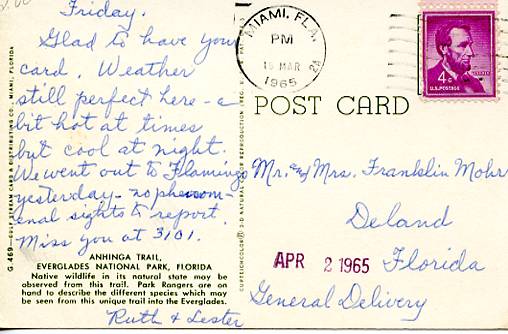 Friday.
Glad to have your
card. Weather
still perfect here - a
bit hot at times
but cool at night.
We went out to Flamingo
yesterday - no phenom-
enal sights to report.
Miss you at 3101.
ANHINGA TRAIL,
EVERGLADES NATIONAL PARK, FLORIDA
Native wildlife in its natural state may be
observed from this trail. Park Rangers are on
hand to describe the different species which may
be seen from this unique trail into the Everglades.
Ruth & Lester
G-469—GULF STREAM CARD & DISTRIBUTING CO., MIAMI, FLORIDA
MIAMI, FLA.
PM
1965
4¢
U.S. POSTAGE
POST CARD
Mr. and Mrs. Franklin Mohr
Deland
APR 2 1965
Florida
General Delivery